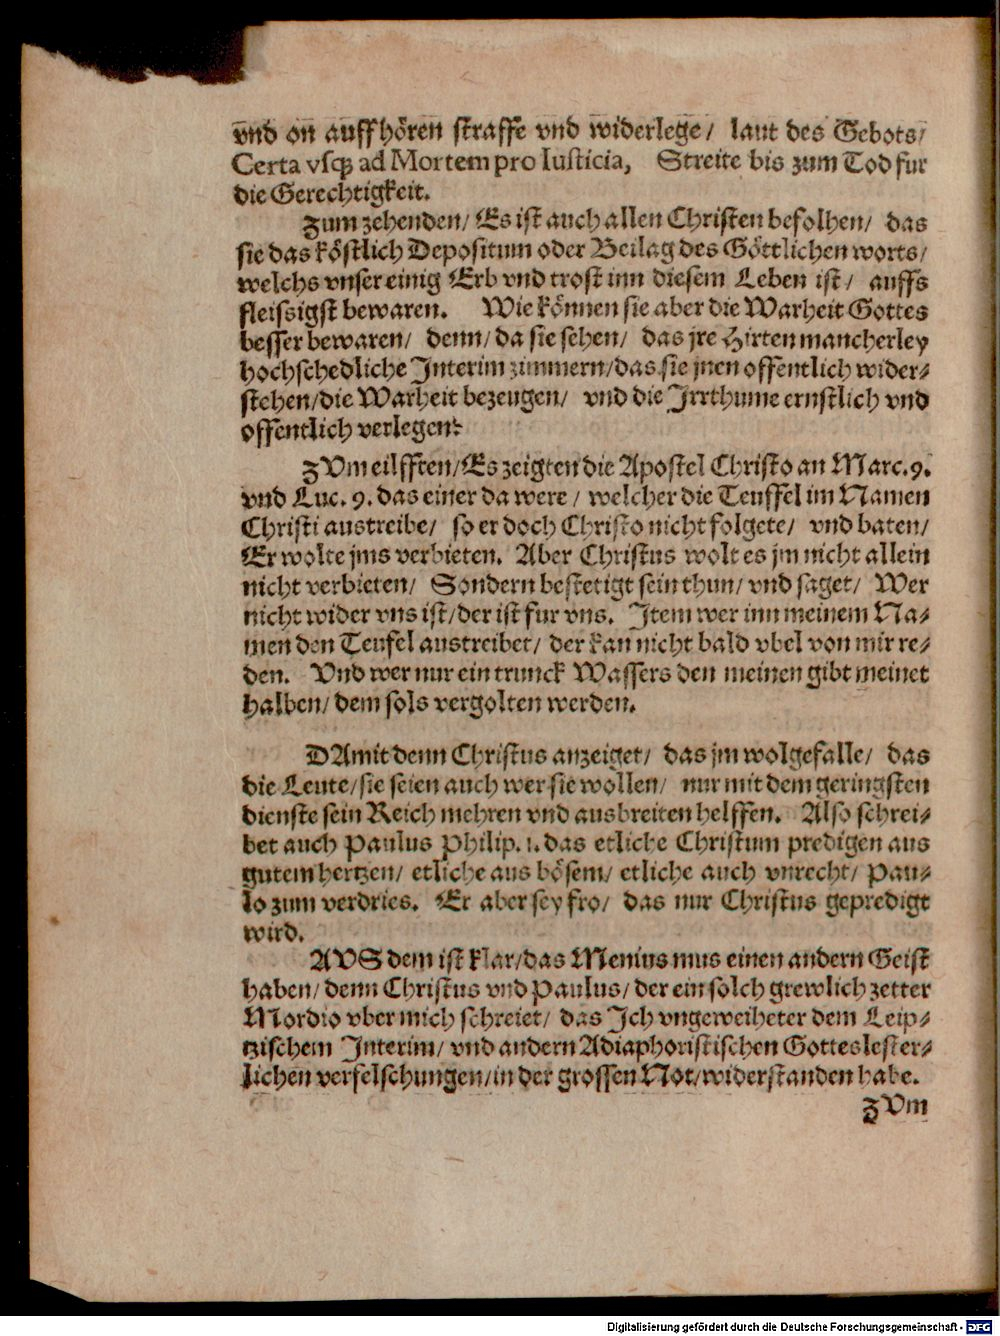 vnd on auffhören straffe vnd widerlege/ laut des Gebots/
Certa vsqꝫ ad Mortem pro Iusticia, Streite bis zum Tod fur
die Gerechtigkeit.
Zum zehenden/ Es ist auch allen Christen befolhen/ das
sie das köstlich Depositum oder Beilag des Göttlichen worts/
welchs vnser einig Erb vnd trost inn diesem Leben ist/ auffs
fleissigst bewaren. Wie können sie aber die Warheit Gottes
besser bewaren/ denn/ da sie sehen/ das jre Hirten mancherley
hochschedliche Interim zimmern/ das sie jnen offentlich wider⸗
stehen/ die Warheit bezeugen/ vnd die Irrthume ernstlich vnd
offentlich verlegen?
ZVm eilfften/ Es zeigten die Apostel Christo an Marc. 9.
vnd Luc. 9. das einer da were/ welcher die Teuffel im Namen
Christi austreibe/ so er doch Christo nicht folgete/ vnd baten/
Er wolte jms verbieten. Aber Christus wolt es jm nicht allein
nicht verbieten/ Sondern bestetigt sein thun/ vnd saget/ Wer
nicht wider vns ist/ der ist fur vns. Item wer inn meinem Na⸗
men den Teufel austreibet/ der kan nicht bald vbel von mir re⸗
den. Vnd wer nur ein trunck Wassers den meinen gibt meinet
halben/ dem sols vergolten werden.
DAmit denn Christus anzeiget/ das jm wolgefalle/ das
die Leute/ sie seien auch wer sie wollen/ nur mit dem geringsten
dienste sein Reich mehren vnd ausbreiten helffen. Also schrei⸗
bet auch Paulus Philip. 1. das etliche Christum predigen aus
gutem hertzen/ etliche aus bösem/ etliche auch vnrecht/ Pau⸗
lo zum verdries. Er aber sey fro/ das nur Christus gepredigt
wird.
AVS dem ist klar/ das Menius mus einen andern Geist
haben/ denn Christus vnd Paulus/ der ein solch grewlich zetter
Mordio vber mich schreiet/ das Ich vngeweiheter dem Leip⸗
tzischem Interim/ vnd andern Adiaphoristischen Gotteslester⸗
lichen verfelschungen/ in der grossen Not/ widerstanden habe.
ZVm
Digitalisierung gefördert durch die Deutsche Forschungsgemeinschaft - DFG